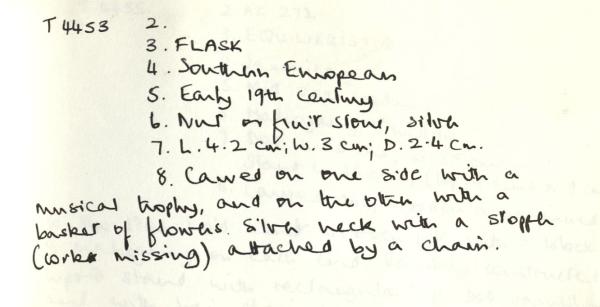 T 4453 2.
3. FLASK
4. Southern European
5. Early 19th century
6. Nut or fruit stone, silver
7. L. 4.2 cm; W. 3 cm; D. 2.4 cm.
8. Carved on one side with a
musical trophy, and on the other with a
basket of flowers. Silver neck with a stopper
(cork missing) attached by a chain.